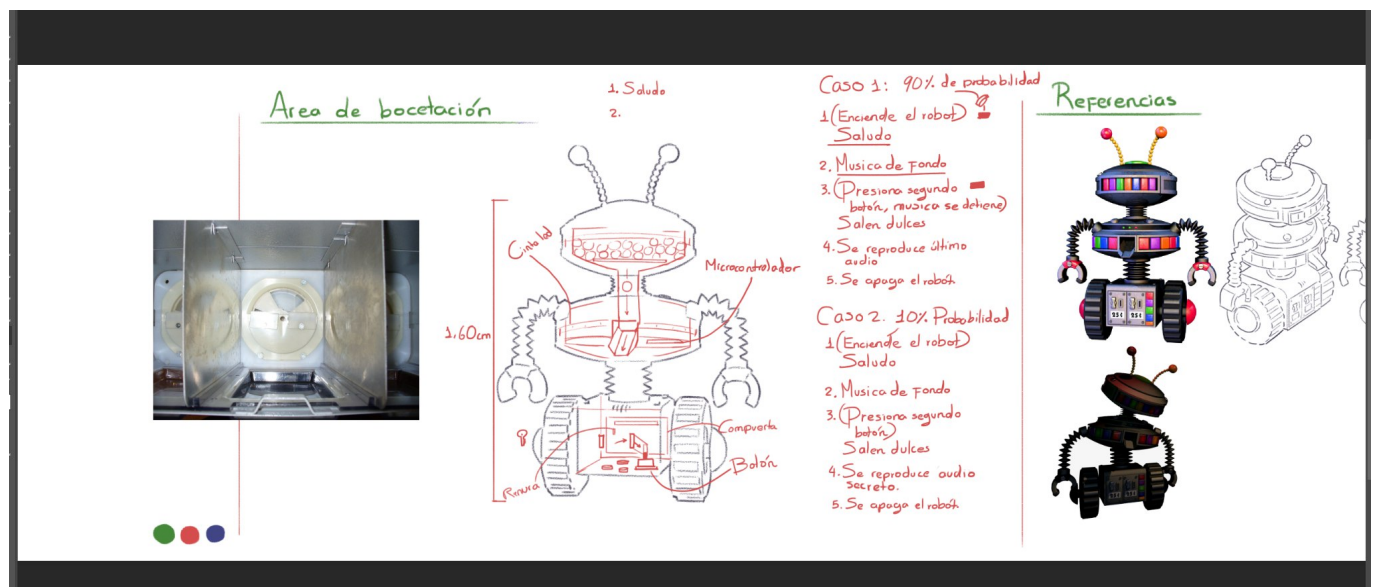 Area de bocetación
1. Saludo
2.
Cinta led
Microcontrolador
1.60cm
Compuerta
Botón
Ranura
Caso 1: 90% de probabilidad
1(Enciende el robot)
Saludo
2. Musica de Fondo
3. (Presiona segundo
botón, musica se detiene)
Salen dulces
4. Se reproduce último
audio
5. Se apaga el robot
Caso 2. 10% Probabilidad
1(Enciende el robot)
Saludo
2. Musica de Fondo
3. (Presiona segundo
botón)
Salen dulces
4. Se reproduce audio
secreto.
5. Se apaga el robot
Referencias
25¢ 25¢